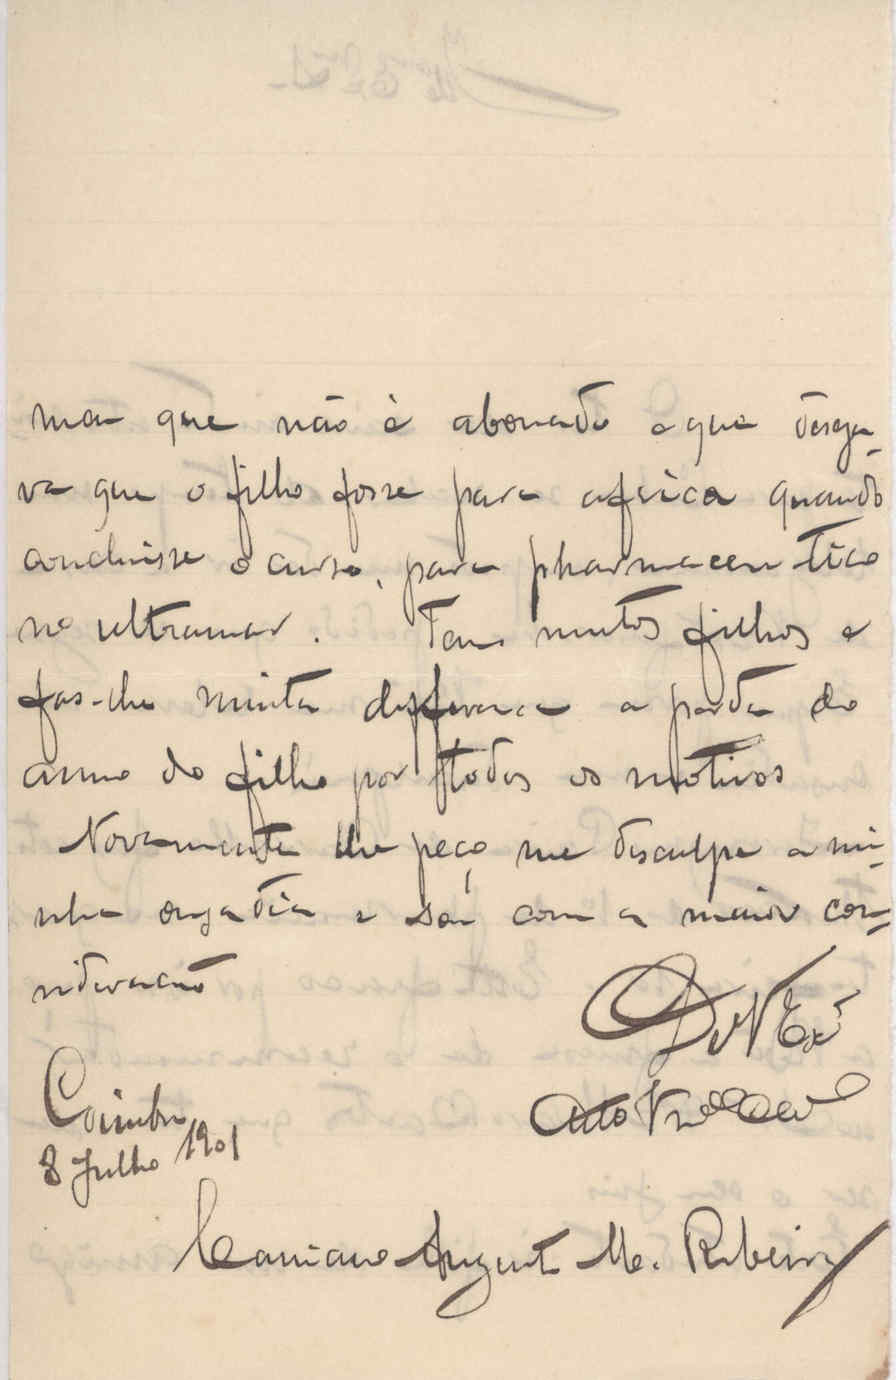 mas que não è abonado e que deseja-
va que o filho fosse para africa quando
concluisse o curso, para pharmaceutico
no ultramar. Tem muitos filhos e
fas-lhe muita differença a perda do
anno do filho por todos os motivos
Novamente lhe peço me desculpe a mi-
nha ousadia e sou com a maior con-
sideração
De V Exª
Atto Vnor
Coimbra
8 Julho 1901
Augusto M. Ribeiro